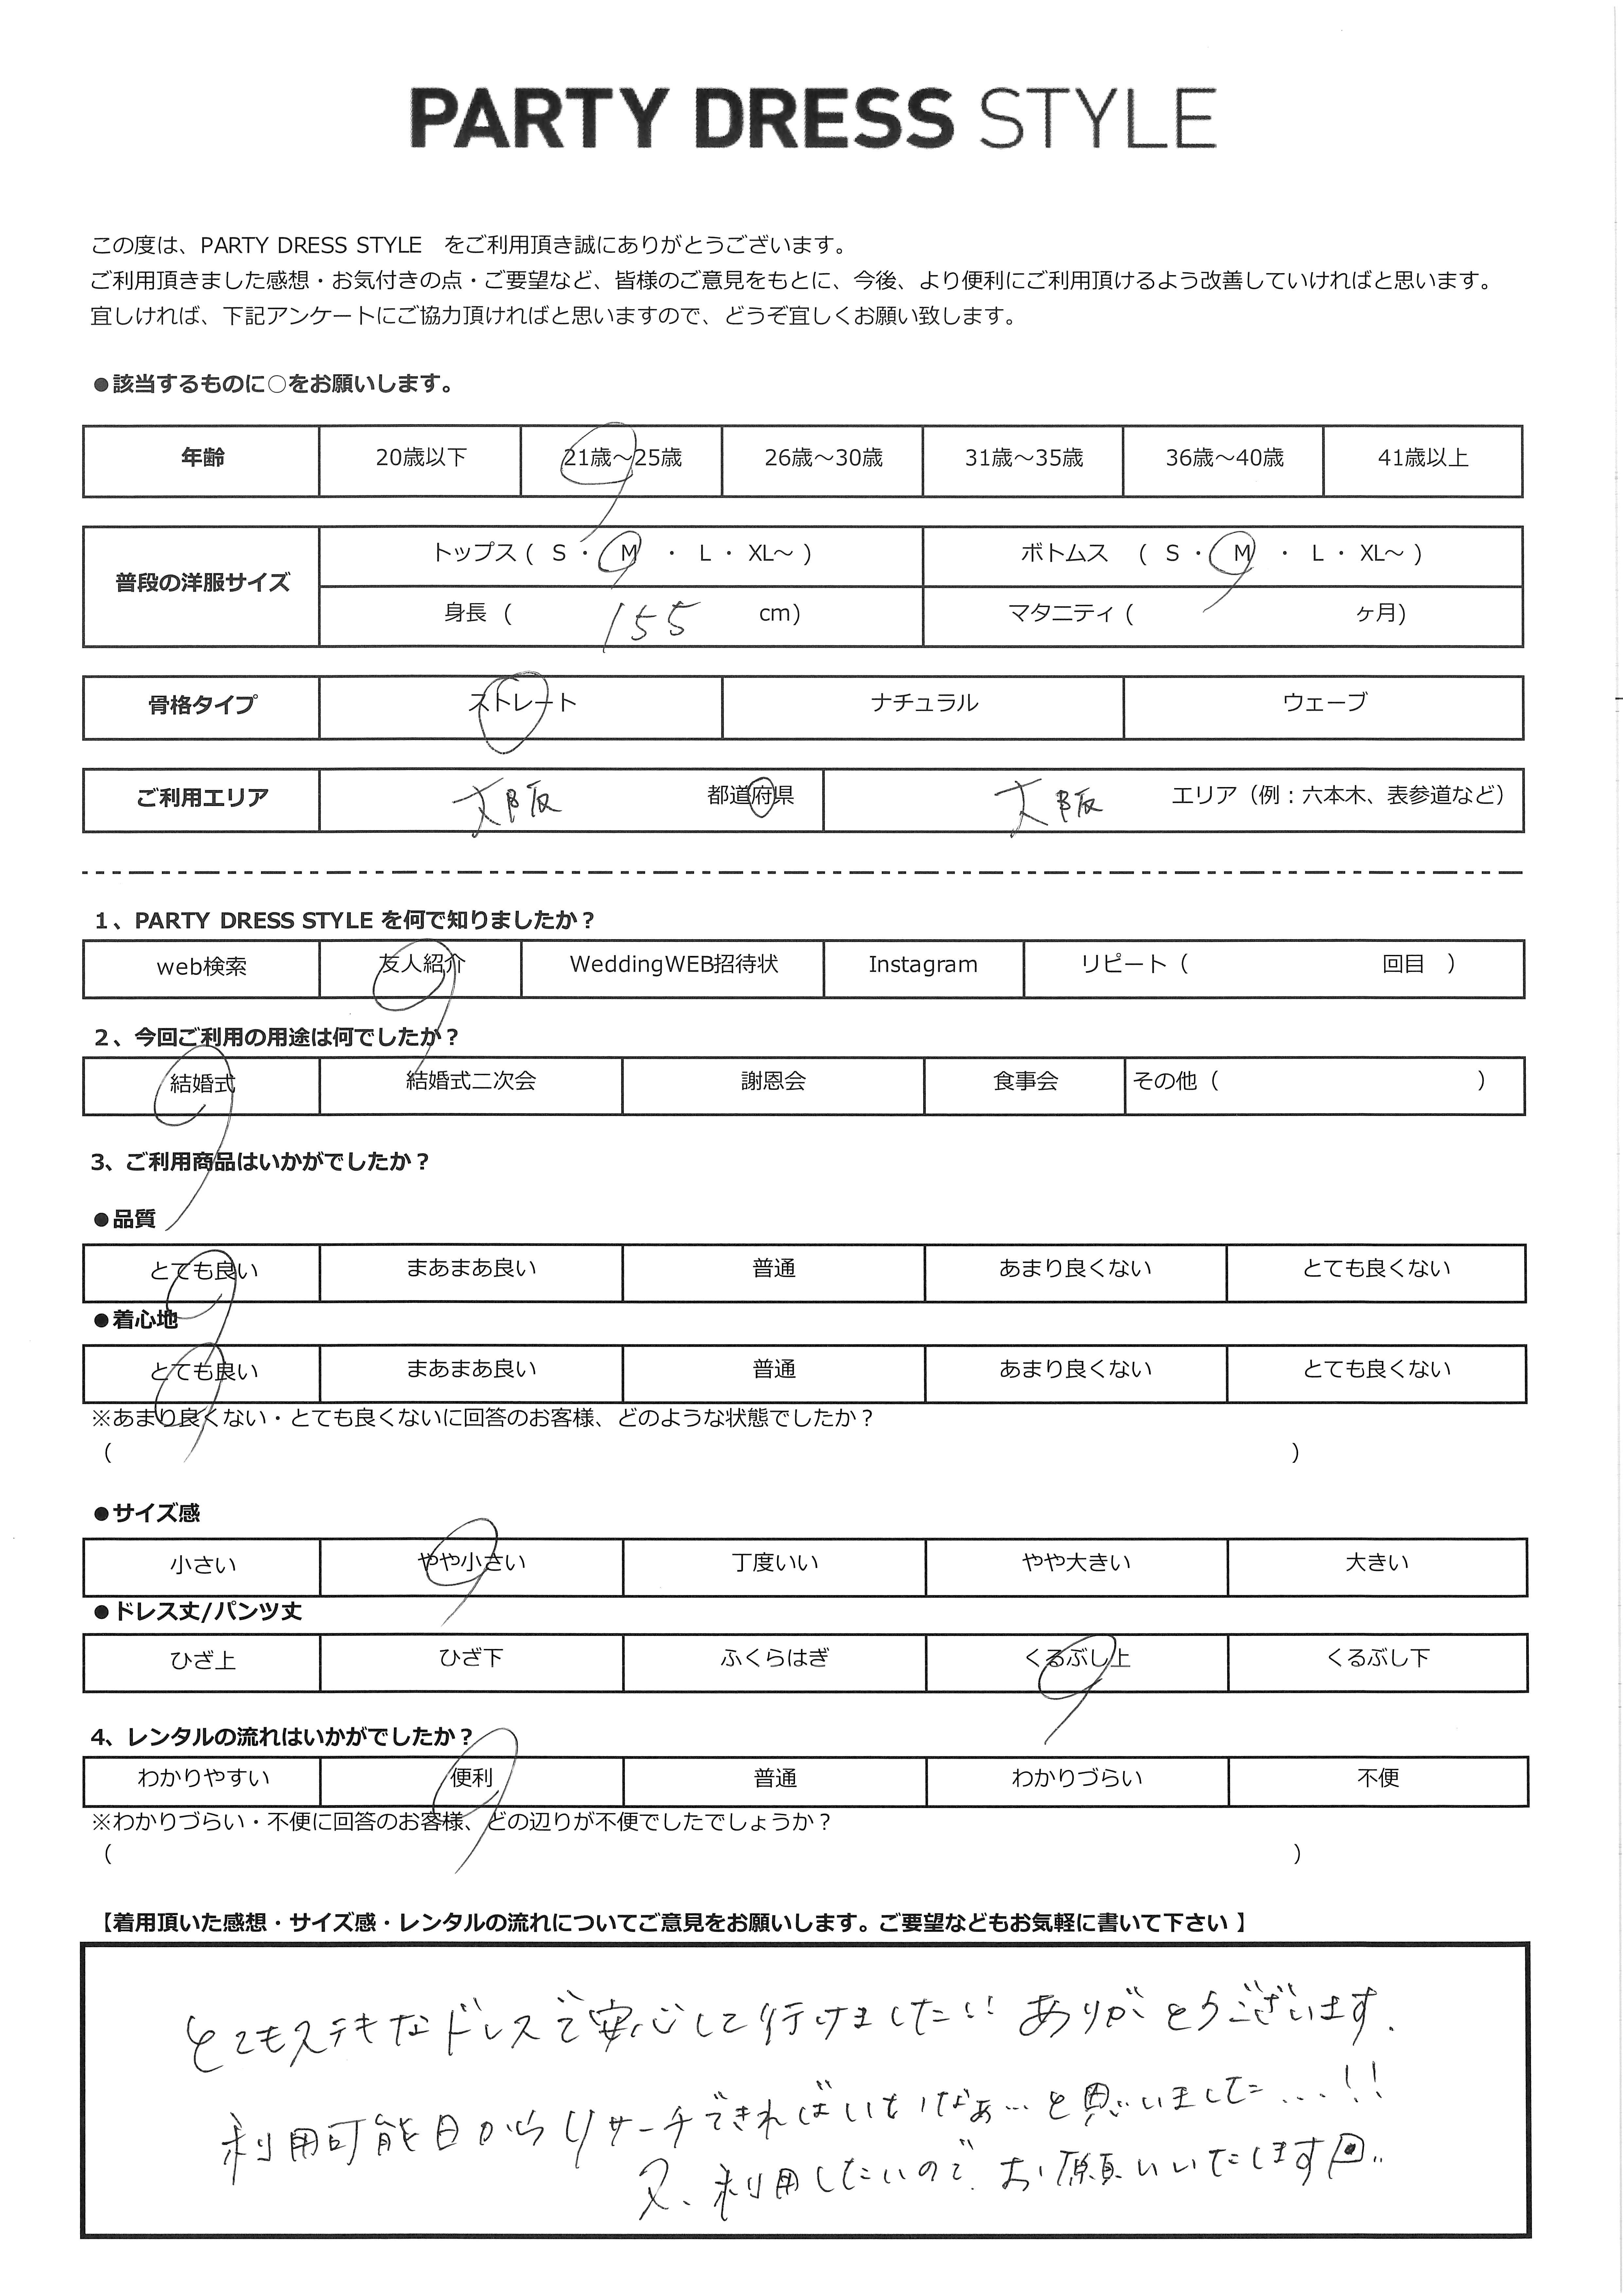 PARTY DRESS STYLE
この度は、PARTY DRESS STYLE　をご利用頂き誠にありがとうございます。
ご利用頂きました感想・お気付きの点・ご要望など、皆様のご意見をもとに、今後、より便利にご利用頂けるよう改善していければと思います。
宜しければ、下記アンケートにご協力頂ければと思いますので、どうぞ宜しくお願い致します。
●該当するものに○をお願いします。
年齢 20歳以下 21歳～25歳 26歳～30歳 31歳～35歳 36歳～40歳 41歳以上
普段の洋服サイズ
トップス ( S ・ M ・ L ・ XL～ ) ボトムス ( S ・ M ・ L ・ XL～ )
身長 ( 155 cm) マタニティ ( ヶ月)
骨格タイプ ストレート ナチュラル ウェーブ
ご利用エリア 大阪 都道府県 大阪 エリア（例：六本木、表参道など）
1、PARTY DRESS STYLE を何で知りましたか？
web検索 友人紹介 WeddingWEB招待状 Instagram リピート（ 回目 ）
2、今回ご利用の用途は何でしたか？
結婚式 結婚式二次会 謝恩会 食事会 その他（ ）
3、ご利用商品はいかがでしたか？
●品質
とても良い まあまあ良い 普通 あまり良くない とても良くない
●着心地
とても良い まあまあ良い 普通 あまり良くない とても良くない
※あまり良くない・とても良くないに回答のお客様、どのような状態でしたか？
( )
●サイズ感
小さい やや小さい 丁度いい やや大きい 大きい
●ドレス丈/パンツ丈
ひざ上 ひざ下 ふくらはぎ くるぶし上 くるぶし下
4、レンタルの流れはいかがでしたか？
わかりやすい 便利 普通 わかりづらい 不便
※わかりづらい・不便に回答のお客様、どの辺りが不便でしたでしょうか？
( )
【着用頂いた感想・サイズ感・レンタルの流れについてご意見をお願いします。ご要望などもお気軽に書いて下さい 】
とてもステキなドレスで安心して行けました!! ありがとうございます.
利用可能日からリサーチできればいいなぁ…と思いました…!!
又、利用したいので、お願いいたします